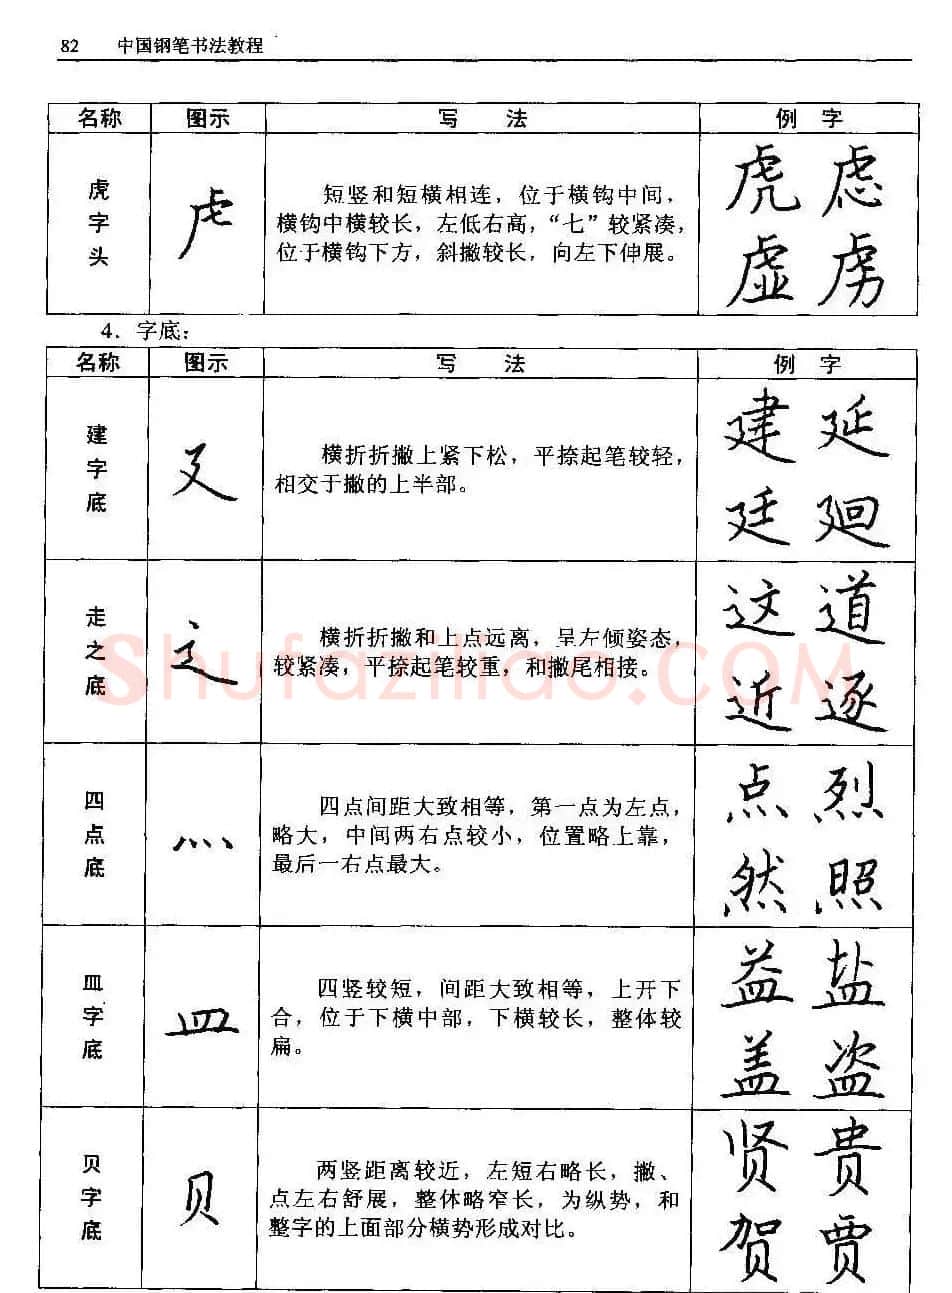 82 中国钢笔书法教程
名称 图示 写 法 例 字
虎字头 虍 短竖和短横相连，位于横钩中间，
横钩中横较长，左低右高，“七”较紧凑，
位于横钩下方，斜撇较长，向左下伸展。
虎 虑
虚 虏
4．字底：
名称 图示 写 法 例 字
建字底 廴 横折折撇上紧下松，平捺起笔较轻，
相交于撇的上半部。
建 延
廷 廻
走之底 辶 横折折撇和上点远离，呈左倾姿态，
较紧凑，平捺起笔较重，和撇尾相接。
这 道
近 逐
shufaziliao.COM
四点底 灬 四点间距大致相等，第一点为左点，
略大，中间两右点较小，位置略上靠，
最后一右点最大。
点 烈
然 照
皿字底 皿 四竖较短，间距大致相等，上开下
合，位于下横中部，下横较长，整体较
扁。
益 盐
盖 盗
贝字底 贝 两竖距离较近，左短右略长，撇、
点左右舒展，整体略窄长，为纵势，和
整字的上面部分横势形成对比。
贤 贵
贺 贾